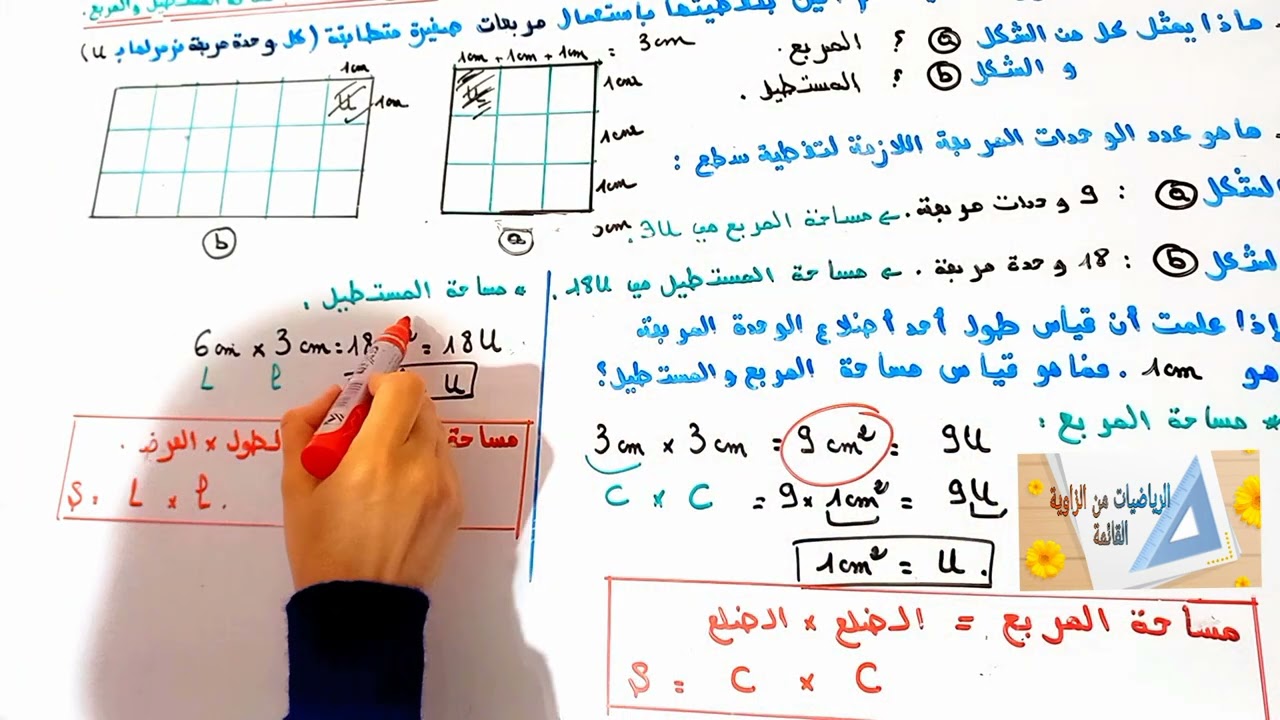 باستعمال مربعات صغيرة متطابقة (كل وحدة مربعة نرمز لها بـ U)
- ماذا يمثل كل من الشكل a ؟ المربع.
و الشكل b ؟ المستطيل.
1cm + 1cm + 1cm = 3cm
U
1cm
1cm
1cm
a
1cm
U
1cm
b
- ما هو عدد الوحدات المربعة اللازمة لتغطية سطح :
الشكل a : 9 وحدات مربعة. مساحة المربع هي 9U.
الشكل b : 18 وحدة مربعة. مساحة المستطيل هي 18U.
إذا علمت أن قياس طول أحد أضلاع الوحدة المربعة
هو 1cm. فما هو قياس مساحة المربع و المستطيل؟
* مساحة المربع :
3cm × 3cm = 9cm² = 9U
C × C = 9 × 1cm² = 9U
1cm² = U.
مساحة المربع = الضلع × الضلع
S = C × C
* مساحة المستطيل :
6cm × 3cm = 18 ² = 18U
L ℓ
U
مساحة الطول × العرض.
S = L × ℓ.
الرياضيات من الزاوية
القائمة